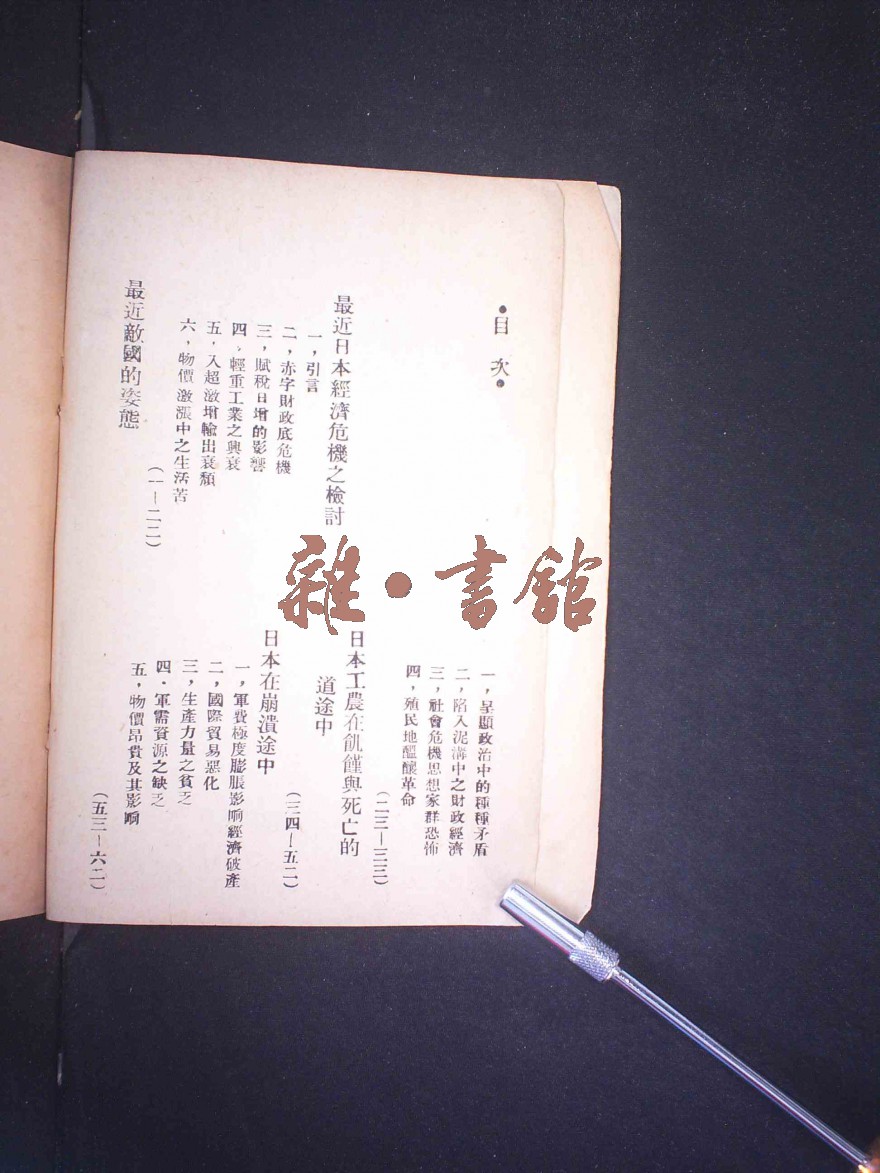 •目次•
最近日本經濟危機之檢討
一，引言
二，赤字財政底危機
三，賦稅日增的影響
四、輕重工業之興衰
五，入超激增輸出衰頹
六，物價激漲中之生活苦
（一—二二）
最近敵國的姿態
一，呈顯政治中的種種矛盾
二，陷入泥溝中之財政經濟
三，社會危機思想家群恐怖
四，殖民地醞釀革命
（二三—三三）
日本工農在飢饉與死亡的
道途中
（三四—五二）
日本在崩潰途中
一，軍費極度膨脹影响經濟破產
二，國際貿易惡化
三，生產力量之貧乏
四．軍需資源之缺乏
五，物價昂貴及其影响
（五三—六二）
雜•書館